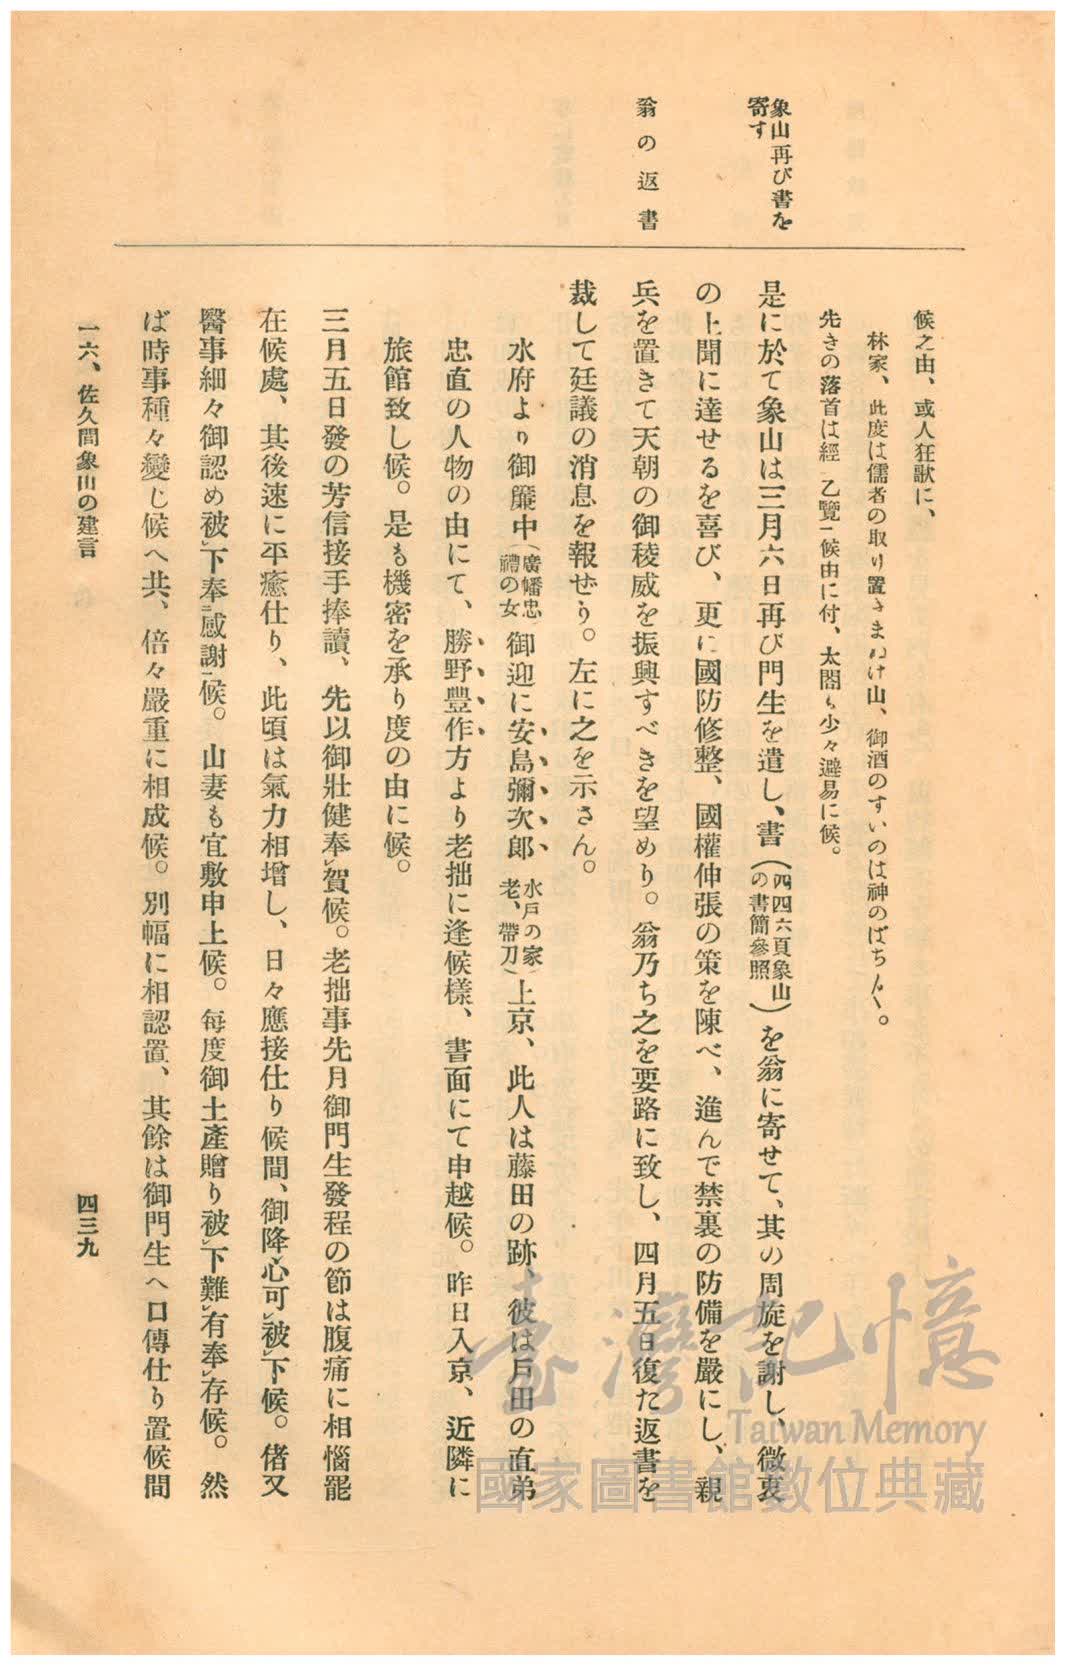 象山再び書を
寄す
翁の返書
候之由、或人狂歌に、
林家、此度は儒者の取り置きまぬけ山、御酒のすいのは神のばち〱。
先きの落首は經 乙覽一候由に付、太閤も少々避易に候。
是に於て象山は三月六日再び門生を遣し、書(四四六頁象山の書簡參照)を翁に寄せて、其の周旋を謝し、微衷
の上聞に達せるを喜び、更に國防修整、國權伸張の策を陳べ、進んで禁裏の防備を嚴にし、親
兵を置きて天朝の御稜威を振興すべきを望めり。翁乃ち之を要路に致し、四月五日復た返書を
裁して廷議の消息を報ぜり。左に之を示さん。
水府より御簾中(廣幡忠禮の女)御迎に安島彌次郎(水戸の家老、帶刀)上京、此人は藤田の跡、彼は戸田の直弟
忠直の人物の由にて、勝野豐作方より老拙に逢候樣、書面にて申越候。昨日入京、近隣に
旅館致し候。是も機密を承り度の由に候。
三月五日發の芳信接手捧讀、先以御壯健奉レ賀候。老拙事先月御門生發程の節は腹痛に相惱罷
在候處、其後速に平癒仕り、此頃は氣力相增し、日々應接仕り候間、御降心可レ被レ下候。偖又
醫事細々御認め被レ下奉二感謝一候。山妻も宜敷申上候。每度御土產贈り被レ下難レ有奉レ存候。然
ば時事種々變じ候へ共、倍々嚴重に相成候。別幅に相認置、其餘は御門生へ口傳仕り置候間
一六、佐久間象山の建言
四三九
臺灣記憶
Taiwan Memory
國家圖書館數位典藏